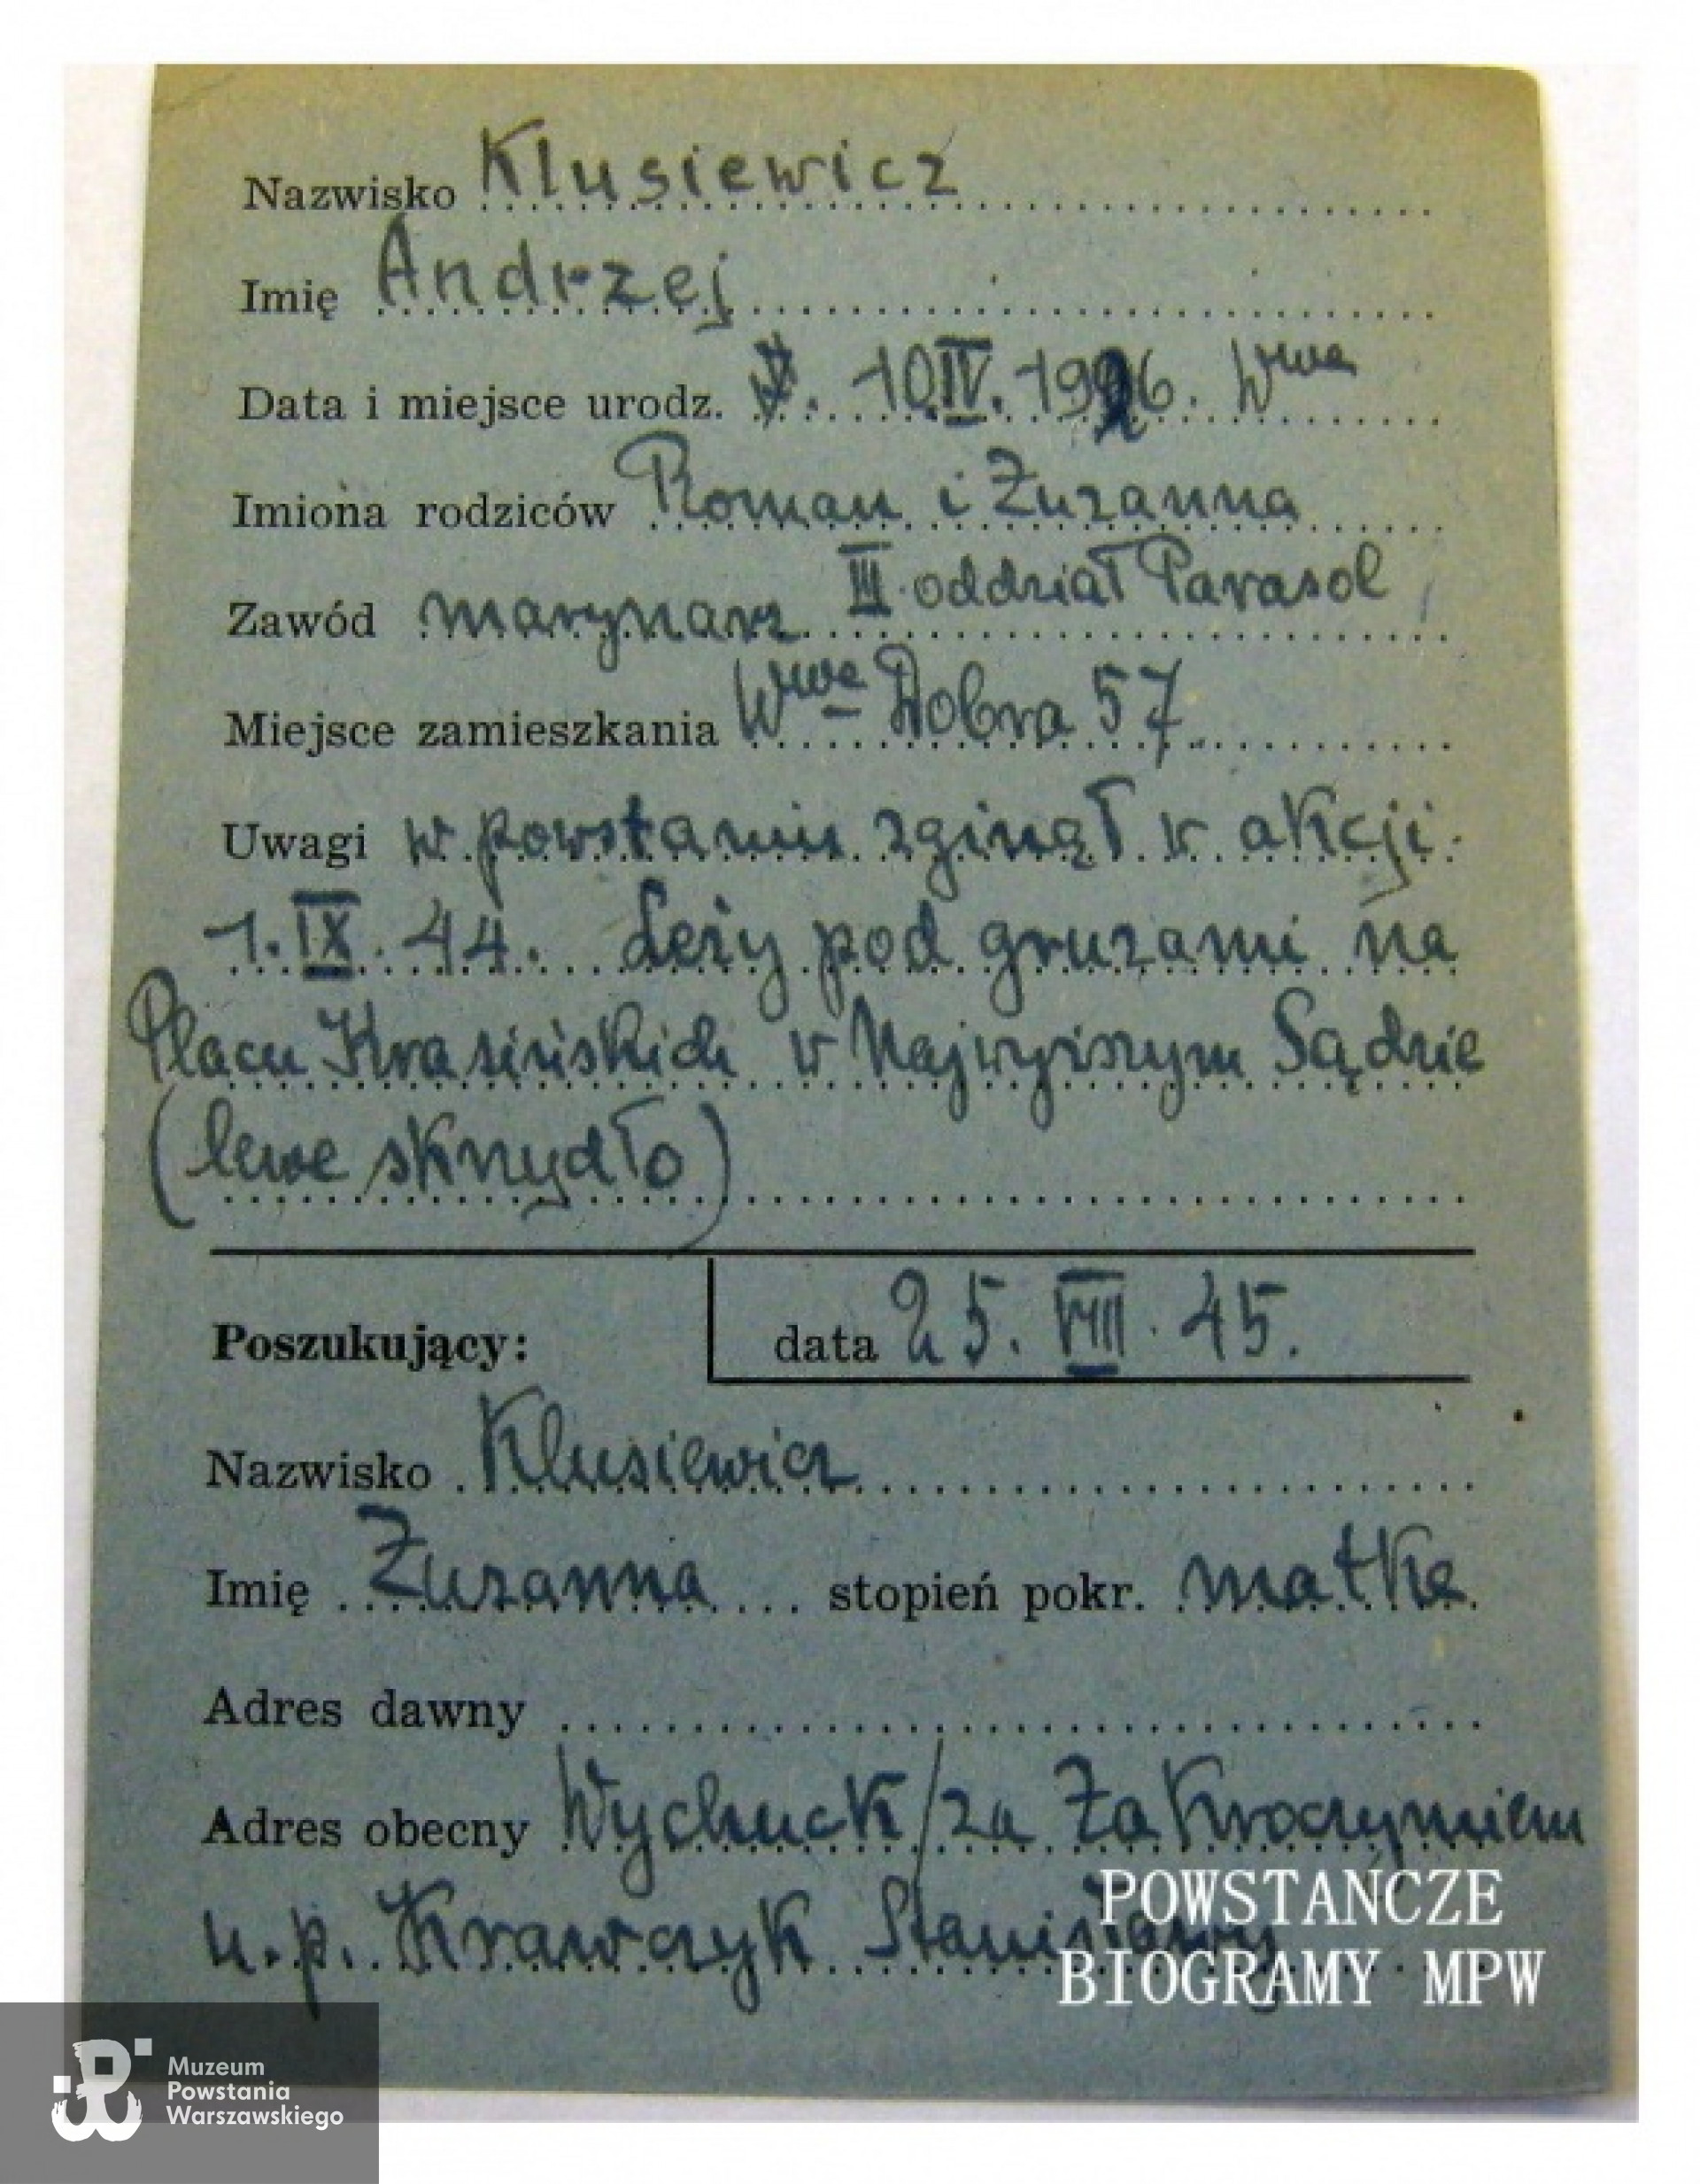 Nazwisko Klusiewicz
Imię Andrzej
Data i miejsce urodz. 10 IV. 1926. Wwa
Imiona rodziców Roman i Zuzanna
Zawód marynarz III oddział Parasol
Miejsce zamieszkania Wwa Dobra 57
Uwagi w powstaniu zginął w akcji.
1. IX. 44. Leży pod gruzami na
Placu Krasińskich w Najwyższym Sądzie
(lewe skrzydło)
Poszukujący: data 25. VIII. 45.
Nazwisko Klusiewicz
Imię Zuzanna stopień pokr. matka
Adres dawny
Adres obecny /za Zakroczymiem
u.p. Krawczyk Stanisławy
POWSTAŃCZE
BIOGRAMY MPW
Muzeum
Powstania
Warszawskiego